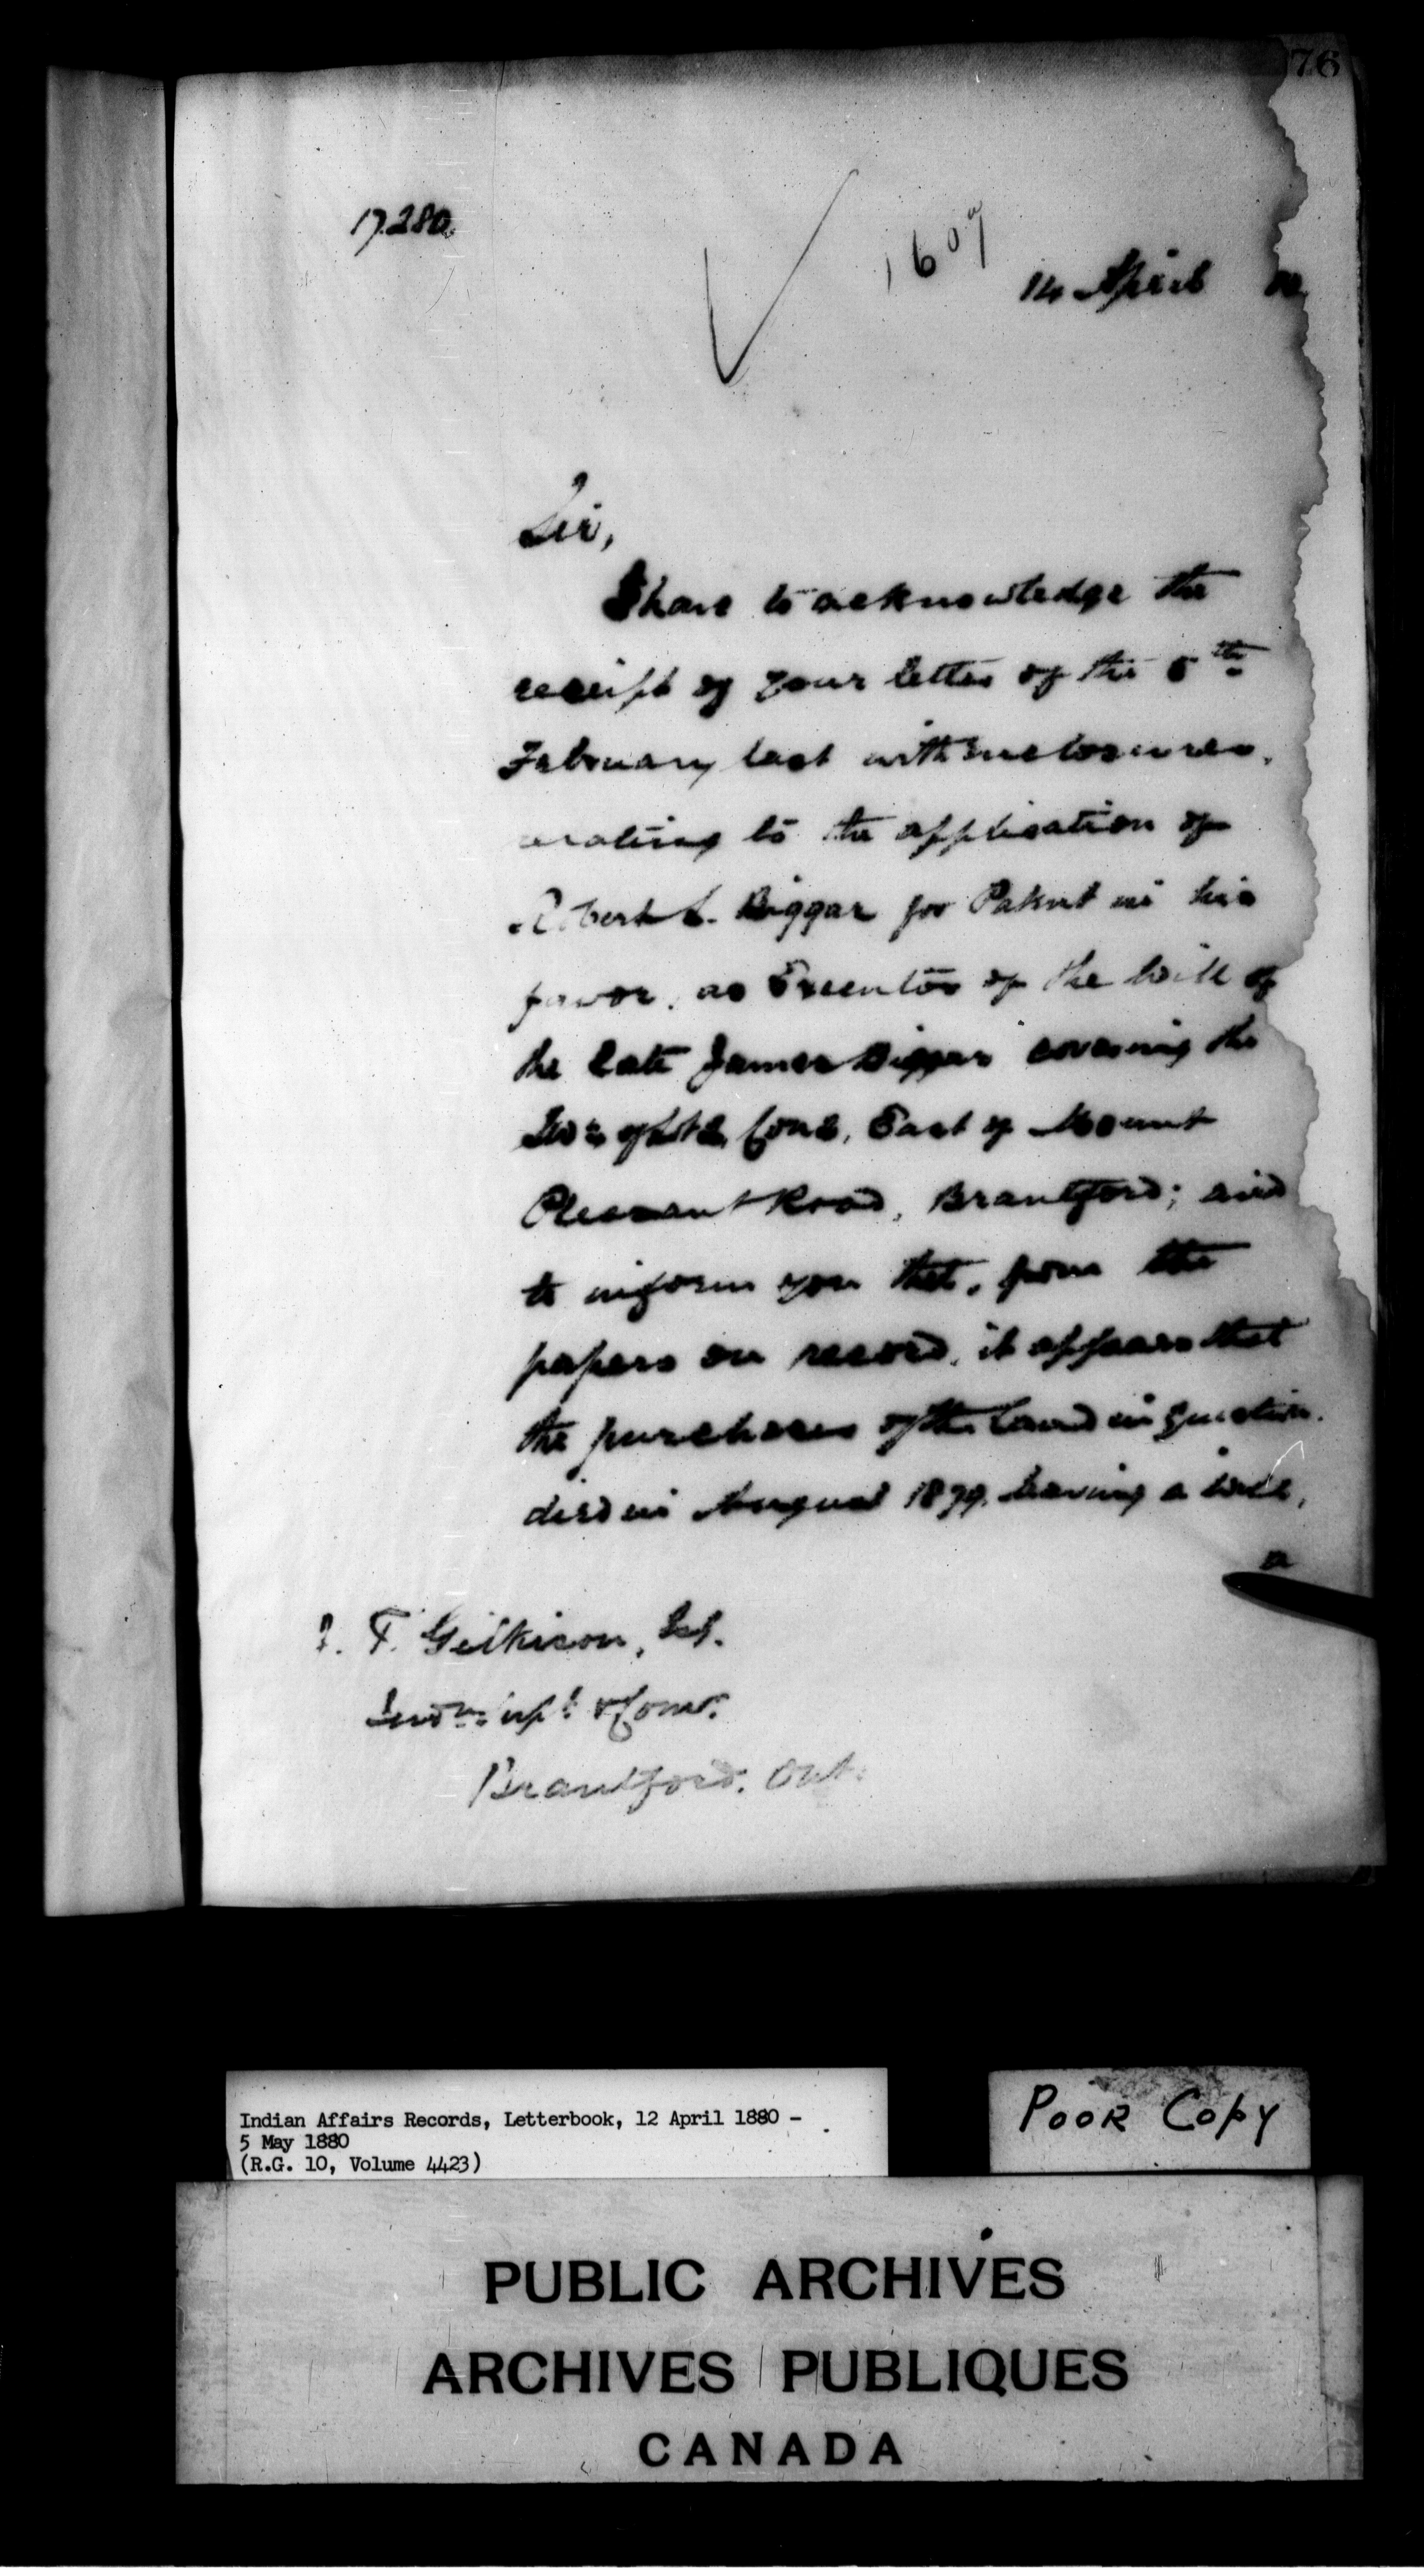 76
17280.
1609
14 April 80
Sir,
I have to acknowledge the
receipt of your letter of the 5th
February last with enclosures,
relating to the application of
Robert L. Biggar for Patent in his
favor, as Executor of the will of
the late James Biggar covering the
of Lot 2, Con 2, East of Mount
Pleasant Road, Brantford; and
to inform you that, from the
papers on record, it appears that
the purchaser of the land in question
died in August 1879, leaving a will,
a
J. T. Gilkison, Esq.
Indn. Supt. & Comr.
Brantford. Ont.
Indian Affairs Records, Letterbook, 12 April 1880 -
5 May 1880
(R.G. 10, Volume 4423)
POOR COPY
PUBLIC ARCHIVES
ARCHIVES PUBLIQUES
CANADA